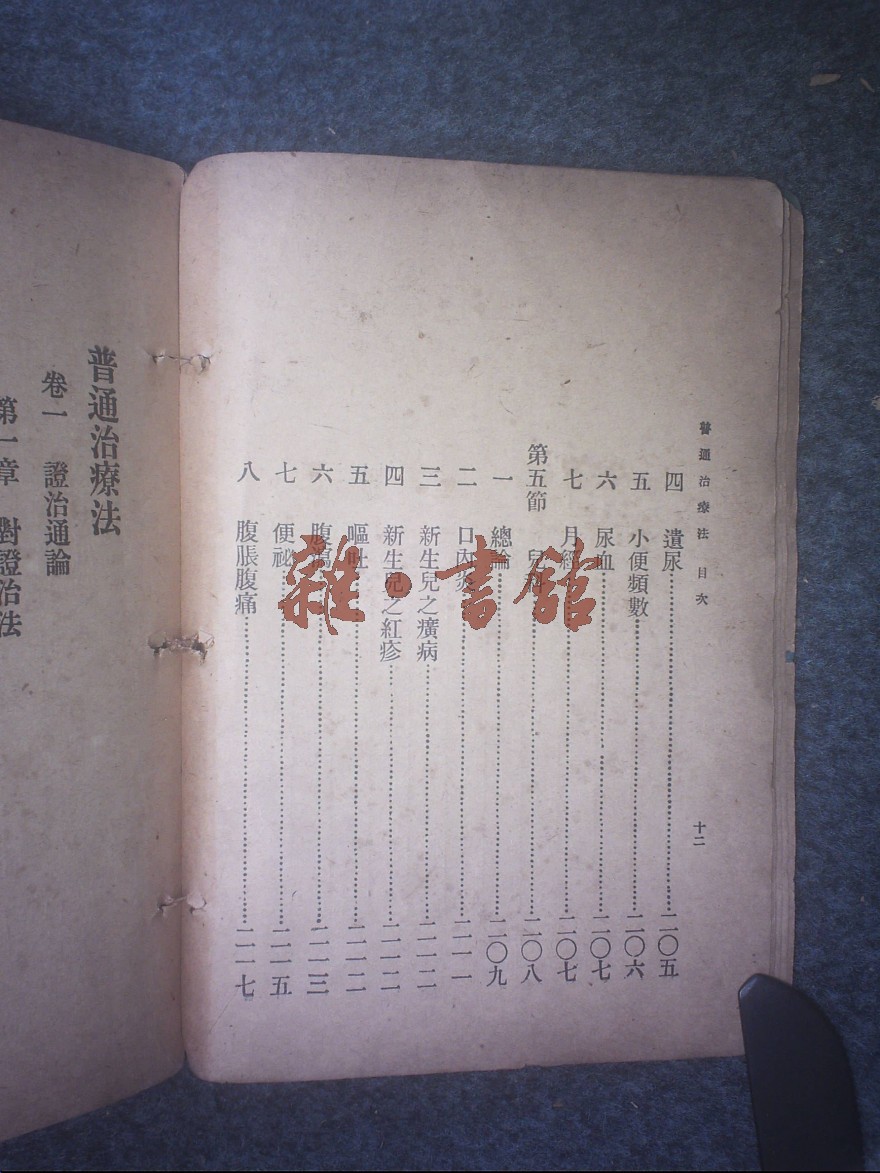 普通治療法 目次
十二
四 遺尿……二〇五
五 小便頻數……二〇六
六 尿血……二〇七
七 月經……二〇七
第五節 兒科……二〇八
一 總論……二〇九
二 口內炎……二一一
三 新生兒之癀病……二一二
四 新生兒之紅疹……二一二
五 嘔吐……二一二
六 腹瀉……二一三
七 便祕……二一五
八 腹脹腹痛……二一七
普通治療法
卷一 證治通論
第一章 對證治法
雜·書館